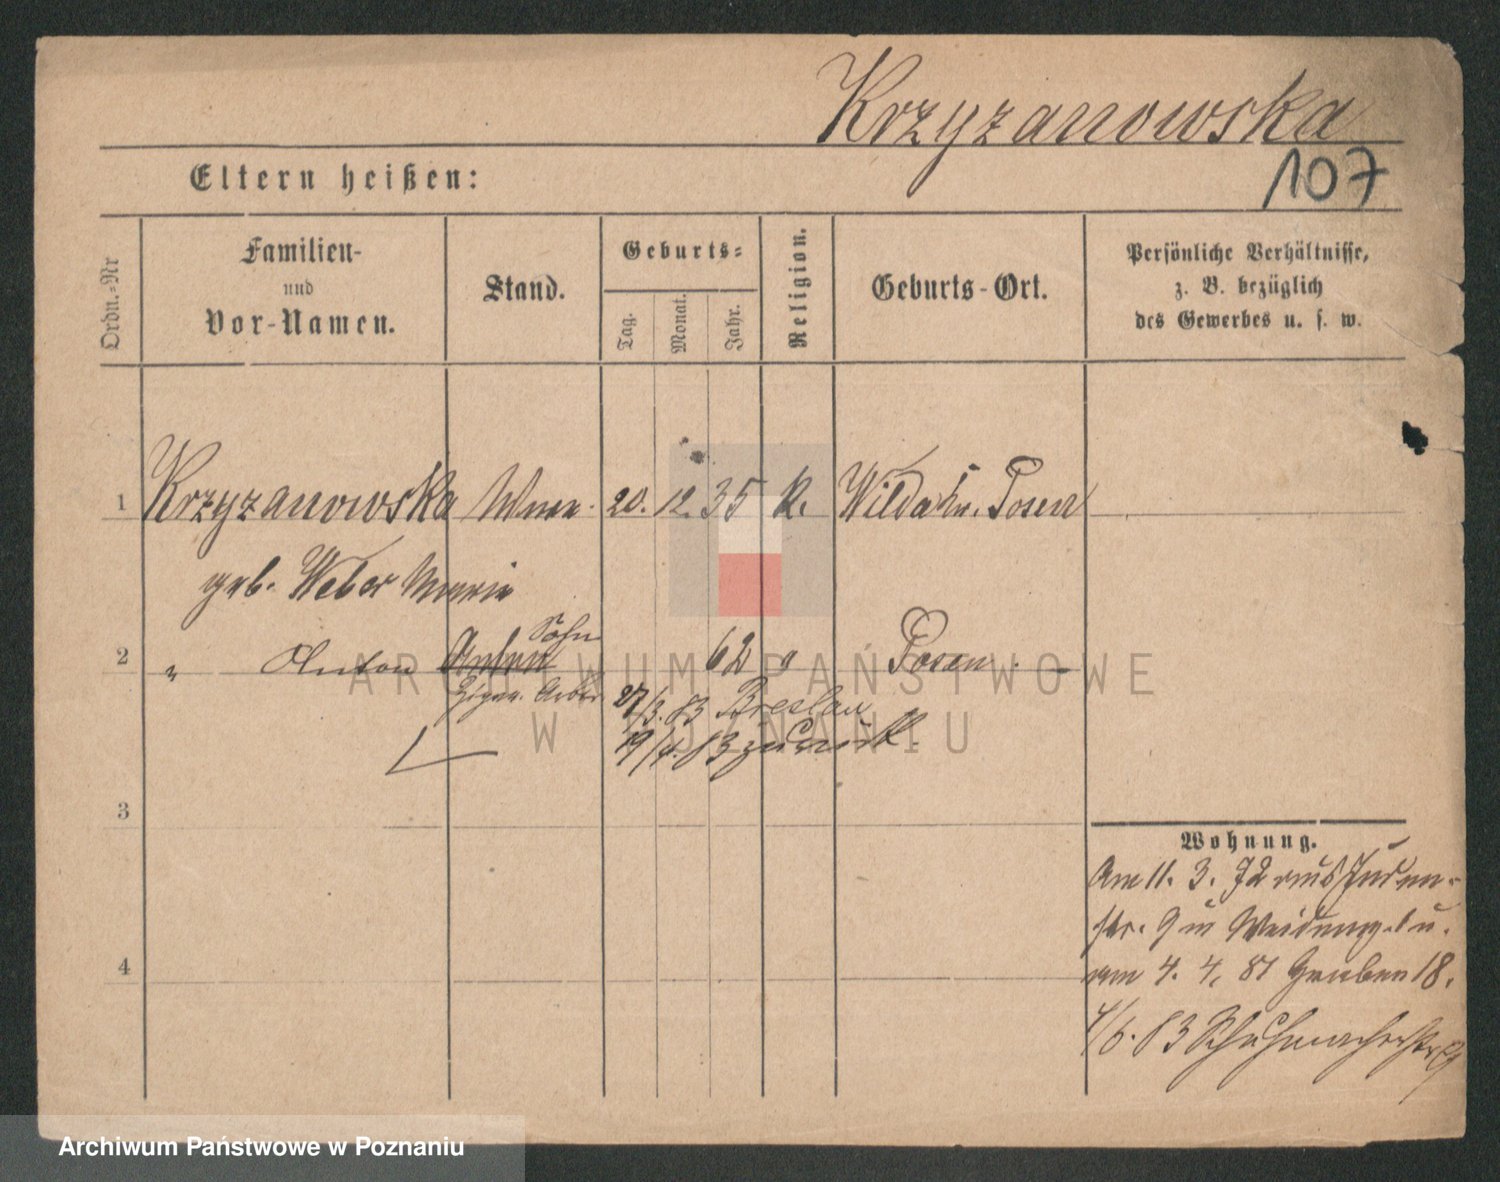 Krzyzanowska
107
Eltern heißen:
Ordn.-Nr
Familien-
und
Vor-Namen.
Stand.
Geburts-
Tag.
Monat.
Jahr.
Religion.
Geburts-Ort.
Persönliche Verhältnisse,
z. B. bezüglich
des Gewerbes u. s. w.
1 Krzyzanowska Wwe. 20. 12. 35 k. Posen
geb. Weber Marie
Sohn
2 " Anton 62 Posen
Zigar. Arbtr
27/3. 83 Breslau
19/4. 83 zurück.
3
Wohnung.
Am 11. 3. 72 aus Juden-
str. 9 in
4
am 4. 4. 81 Graben 18.
4/6. 83 Schuhmacherstr 9
ARCHIWUM PAŃSTWOWE
W POZNANIU
Archiwum Państwowe w Poznaniu